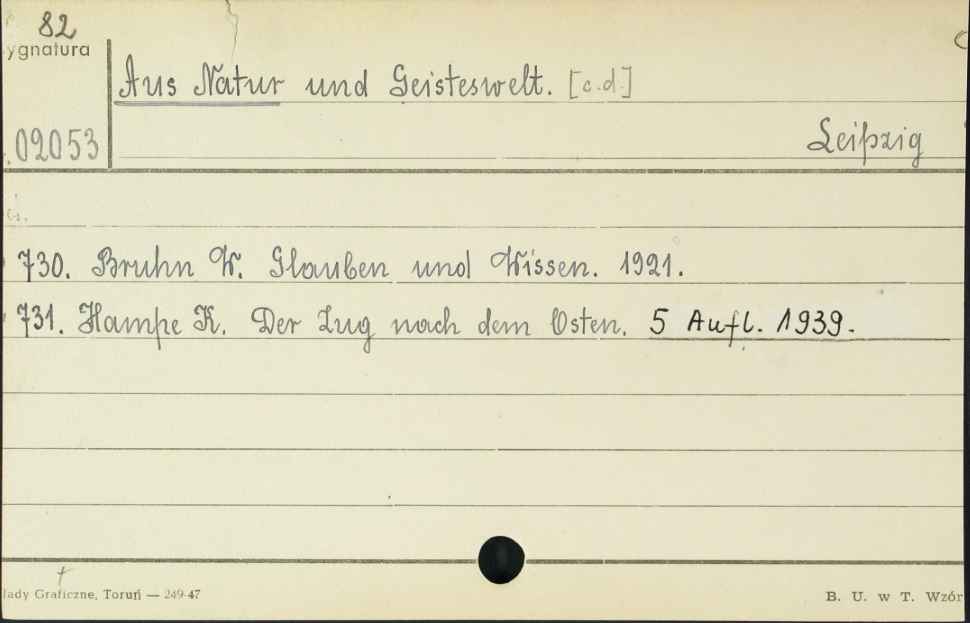 82
ygnatura
Aus Natur und Geisteswelt. [c.d.]
02053
Leipzig
730. Bruhn W. Glauben und Wissen. 1921.
731. Hampe K. Der Zug nach dem Osten. 5 Aufl. 1939.
łady Graficzne, Toruń — 249-47
B. U. w T. Wzór